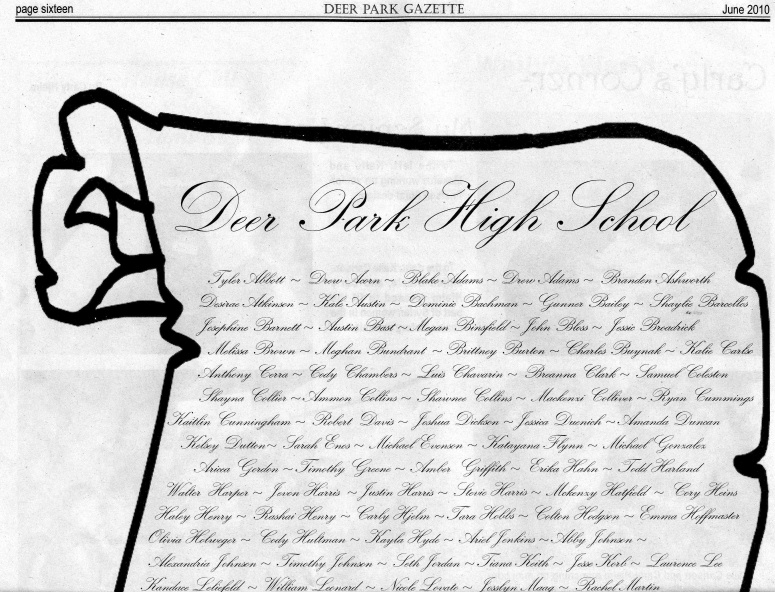 page sixteen DEER PARK GAZETTE June 2010
Deer Park High School
Tyler Abbott ~ Drew Acorn ~ Blake Adams ~ Drew Adams ~ Branden Ashworth
Desirae Atkinson ~ Kale Austin ~ Dominic Bachman ~ Gunner Bailey ~ Shaylie Barcellos
Josephine Barnett ~ Austin Bast ~ Megan Binsfield ~ John Bloss ~ Jessie Broadrick
Melissa Brown ~ Meghan Bundrant ~ Brittney Burton ~ Charles Buynak ~ Katie Carlse
Anthony Cerra ~ Cody Chambers ~ Luis Chavarin ~ Breanna Clark ~ Samuel Coleston
Shayna Collier ~ Ammon Collins ~ Shawnee Collins ~ Mackenzi Colliver ~ Ryan Cummings
Kaitlin Cunningham ~ Robert Davis ~ Joshua Dickson ~ Jessica Duenich ~ Amanda Duncan
Kelsey Dutton ~ Sarah Enos ~ Michael Evenson ~ Katayana Flynn ~ Michael Gonzalez
Arica Gordon ~ Timothy Greene ~ Amber Griffith ~ Erika Hahn ~ Todd Harland
Walter Harper ~ Joven Harris ~ Justin Harris ~ Stevie Harris ~ Makenzy Hatfield ~ Cory Heins
Haley Henry ~ Rashai Henry ~ Carly Hjelm ~ Tara Hobbs ~ Colton Hodgson ~ Emma Hoffmaster
Olivia Holweger ~ Cody Hultman ~ Kayla Hyde ~ Ariel Jenkins ~ Abby Johnson ~
Alexandria Johnson ~ Timothy Johnson ~ Seth Jordan ~ Tiana Keith ~ Jesse Kerb ~ Laurence Lee
Kandace Lelifeld ~ William Leonard ~ Nicole Lovato ~ Josslyn Maag ~ Rachel Martin